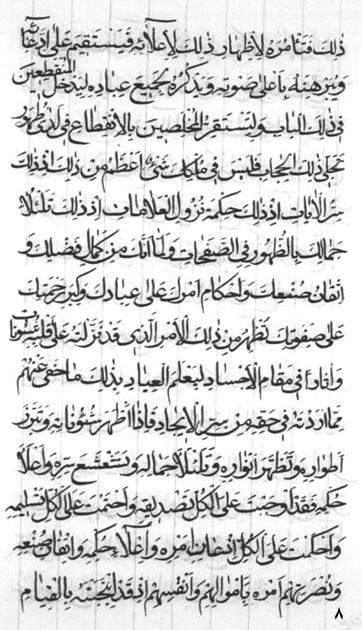 ذلك فتأمره لإظهار ذلك لإعلائه فيستقيم على ادعائه
ويبرهنه بأعلى صوته ويذكره لجميع عباده ليدخل المنقطعين
في ذلك الباب وليستقر المخلصين بالانقطاع في لدى ظهور
تجلى ذلك الحجاب فليس في ملكك شيء اعظم من ذلك اذ ذلك
سر الآيات اذ ذلك حكمة نزول العلامات اذ ذلك تلئلأ
جمالك بالظهور في الصفحات ولما انك من كمال فضلك و
اتقان صنعك واحكام امرك على عبادك وكبر رحمتك
على صفوتك تظهر من ذلك الأمر الذي قد نزلته على قلبه شئونات
وآثارا في مقام الأجساد ليعلم العباد بذلك ما خفي عنهم
مما اردته في حقه من سر الايجاد فاذا اظهر شئوناته وتبرز
اطواره وتظهر انواره وتلئلأ جماله وتشعشع سره واعلاء
حكمه فقد اوجبت على الكل تصديقه واحتمت على الكل تسليمه
واحكمت على الكل اتباع امره واعلاء حكمه واتقان صنعه
ونصرتهم امره باموالهم وانفسهم اذ قد انتجبته بالقيام
٨